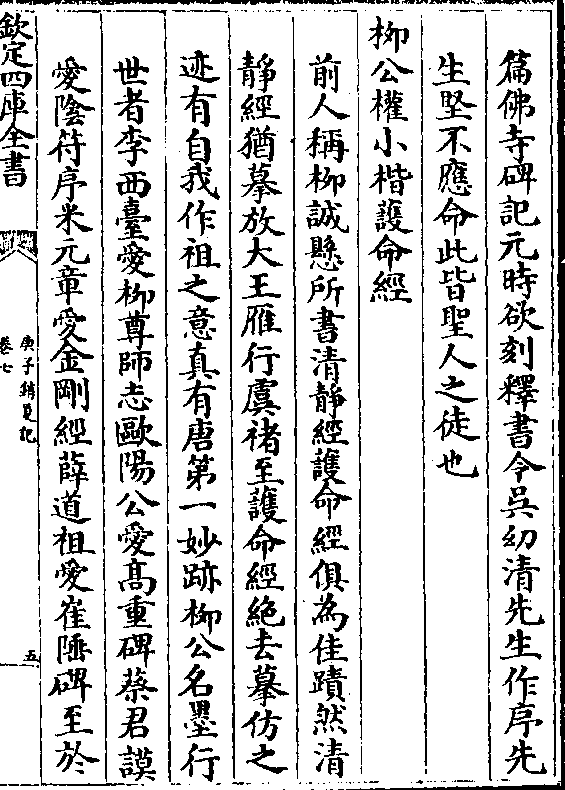 篇佛寺碑記元時欲刻釋書令吳幼清先生作序先
生堅不應命此皆聖人之徒也
柳公權小楷䕶命經
前人稱柳誠懸所書清靜經䕶命經俱為佳蹟然清
靜經猶摹放大王雁行虞褚至䕶命經絶去摹仿之
迹有自我作祖之意真有唐第一妙跡柳公名墨行
世者李西臺愛柳尊師志歐陽公愛髙重碑蔡君謨
愛陰符序米元章愛金剛經薛道祖愛崔陲碑至於
欽定四庫全書
庚子銷夏記
卷七
五